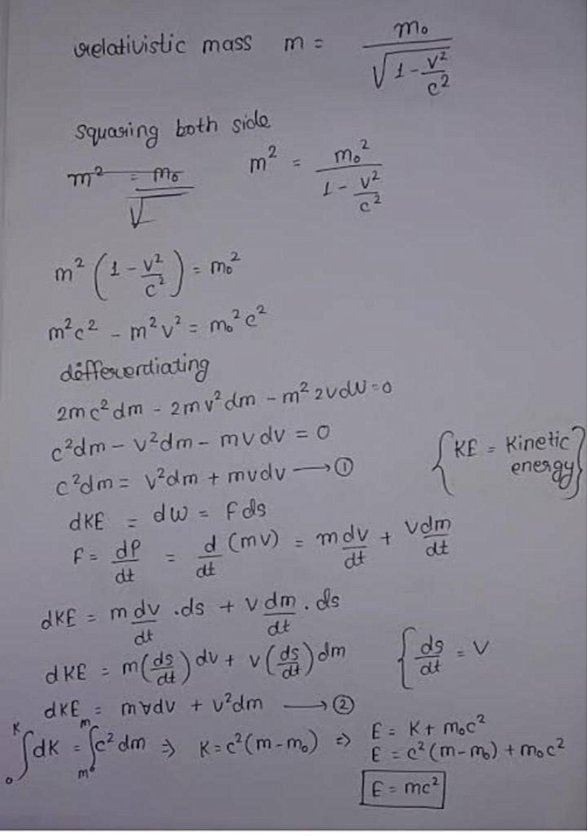 relativistic mass m = m₀ / √(1 - v²/c²)
Squaring both side
m² = m₀ / √
m² = m₀² / (1 - v²/c²)
m² (1 - v²/c²) = m₀²
m²c² - m²v² = m₀²c²
differentiating
2mc²dm - 2mv²dm - m² 2vdv = 0
c²dm - v²dm - mvdv = 0
c²dm = v²dm + mvdv → ①
{KE = Kinetic energy}
dKE = dw = Fds
F = dP/dt = d/dt (mv) = m dv/dt + v dm/dt
dKE = m dv/dt .ds + v dm/dt . ds
dKE = m(ds/dt) dv + v(ds/dt) dm { ds/dt = v
dKE = mvdv + v²dm → ②
∫₀ᴷ dK = ∫ₘ₀ᵐ c²dm ⇒ K = c²(m-m₀) ⇒ E = K + m₀c²
E = c²(m-m₀) + m₀c²
E = mc²